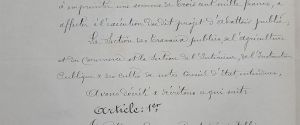 à emprunter une somme de trois cent mille francs, à
affecter à l'exécution dudit projet d'abattoir public,
La Section des travaux publics, de l'agriculture
et du Commerce et la Section de l'Intérieur, de l'Instruction
Publique & des cultes de notre Conseil d'Etat entendues,
Avons décrété & décrétons ce qui suit:
Article 1er